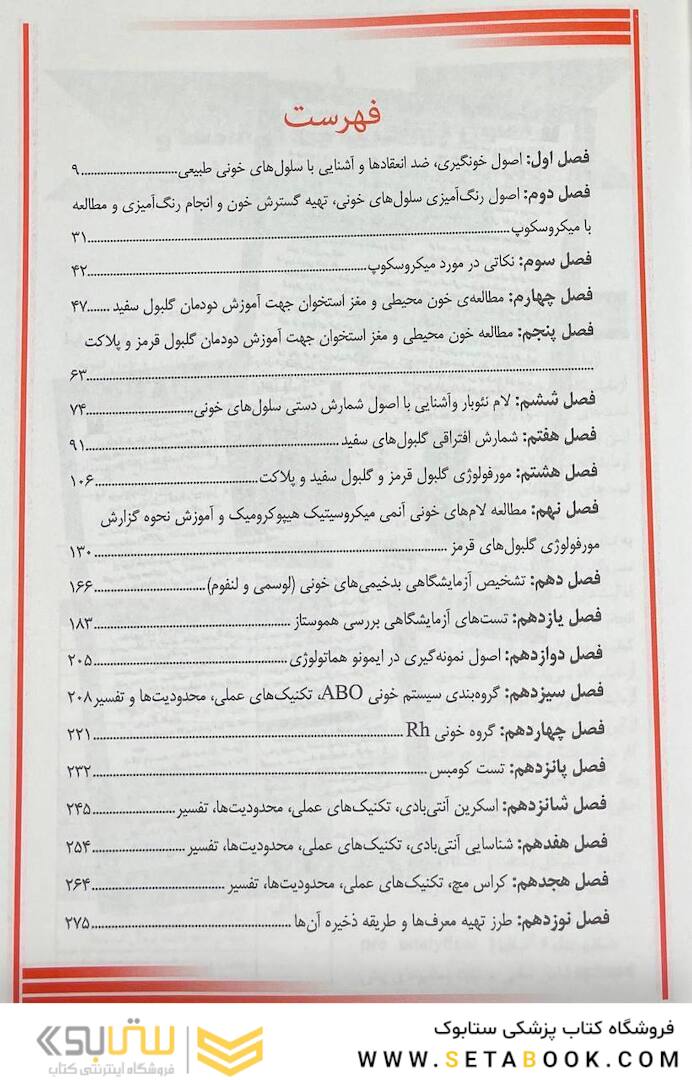 فهرست
فصل اول: اصول خونگیری، ضد انعقادها و آشنایی با سلول‌های خونی طبیعی..............................۹
فصل دوم: اصول رنگ‌آمیزی سلول‌های خونی، تهیه گسترش خون و انجام رنگ‌آمیزی و مطالعه
با میکروسکوپ..............................۳۱
فصل سوم: نکاتی در مورد میکروسکوپ..............................۴۲
فصل چهارم: مطالعه‌ی خون محیطی و مغز استخوان جهت آموزش دودمان گلبول سفید ......۴۷
فصل پنجم: مطالعه خون محیطی و مغز استخوان جهت آموزش دودمان گلبول قرمز و پلاکت
..............................۶۳
فصل ششم: لام نئوبار وآشنایی با اصول شمارش دستی سلول‌های خونی..............................۷۴
فصل هفتم: شمارش افتراقی گلبول‌های سفید..............................۹۱
فصل هشتم: مورفولوژی گلبول قرمز و گلبول سفید و پلاکت..............................۱۰۶
فصل نهم: مطالعه لام‌های خونی آنمی میکروسیتیک هیپوکرومیک و آموزش نحوه گزارش
مورفولوژی گلبول‌های قرمز ..............................۱۳۰
فصل دهم: تشخیص آزمایشگاهی بدخیمی‌های خونی (لوسمی و لنفوم)..............................۱۶۶
فصل یازدهم: تست‌های آزمایشگاهی بررسی هموستاز ..............................۱۸۳
فصل دوازدهم: اصول نمونه‌گیری در ایمونو هماتولوژی..............................۲۰۵
فصل سیزدهم: گروه‌بندی سیستم خونی ABO، تکنیک‌های عملی، محدودیت‌ها و تفسیر۲۰۸
فصل چهاردهم: گروه خونی Rh ..............................۲۲۱
فصل پانزدهم: تست کومبس ..............................۲۳۲
فصل شانزدهم: اسکرین آنتی‌بادی، تکنیک‌های عملی، محدودیت‌ها، تفسیر ....................۲۴۵
فصل هفدهم: شناسایی آنتی‌بادی، تکنیک‌های عملی، محدودیت‌ها، تفسیر ....................۲۵۴
فصل هجدهم: کراس مچ، تکنیک‌های عملی، محدودیت‌ها، تفسیر ..............................۲۶۴
فصل نوزدهم: طرز تهیه معرف‌ها و طریقه ذخیره آن‌ها ..............................۲۷۵
فروشگاه کتاب پزشکی ستابوک
WWW.SETABOOK.COM
ستابوک
فروشگاه اینترنتی کتاب